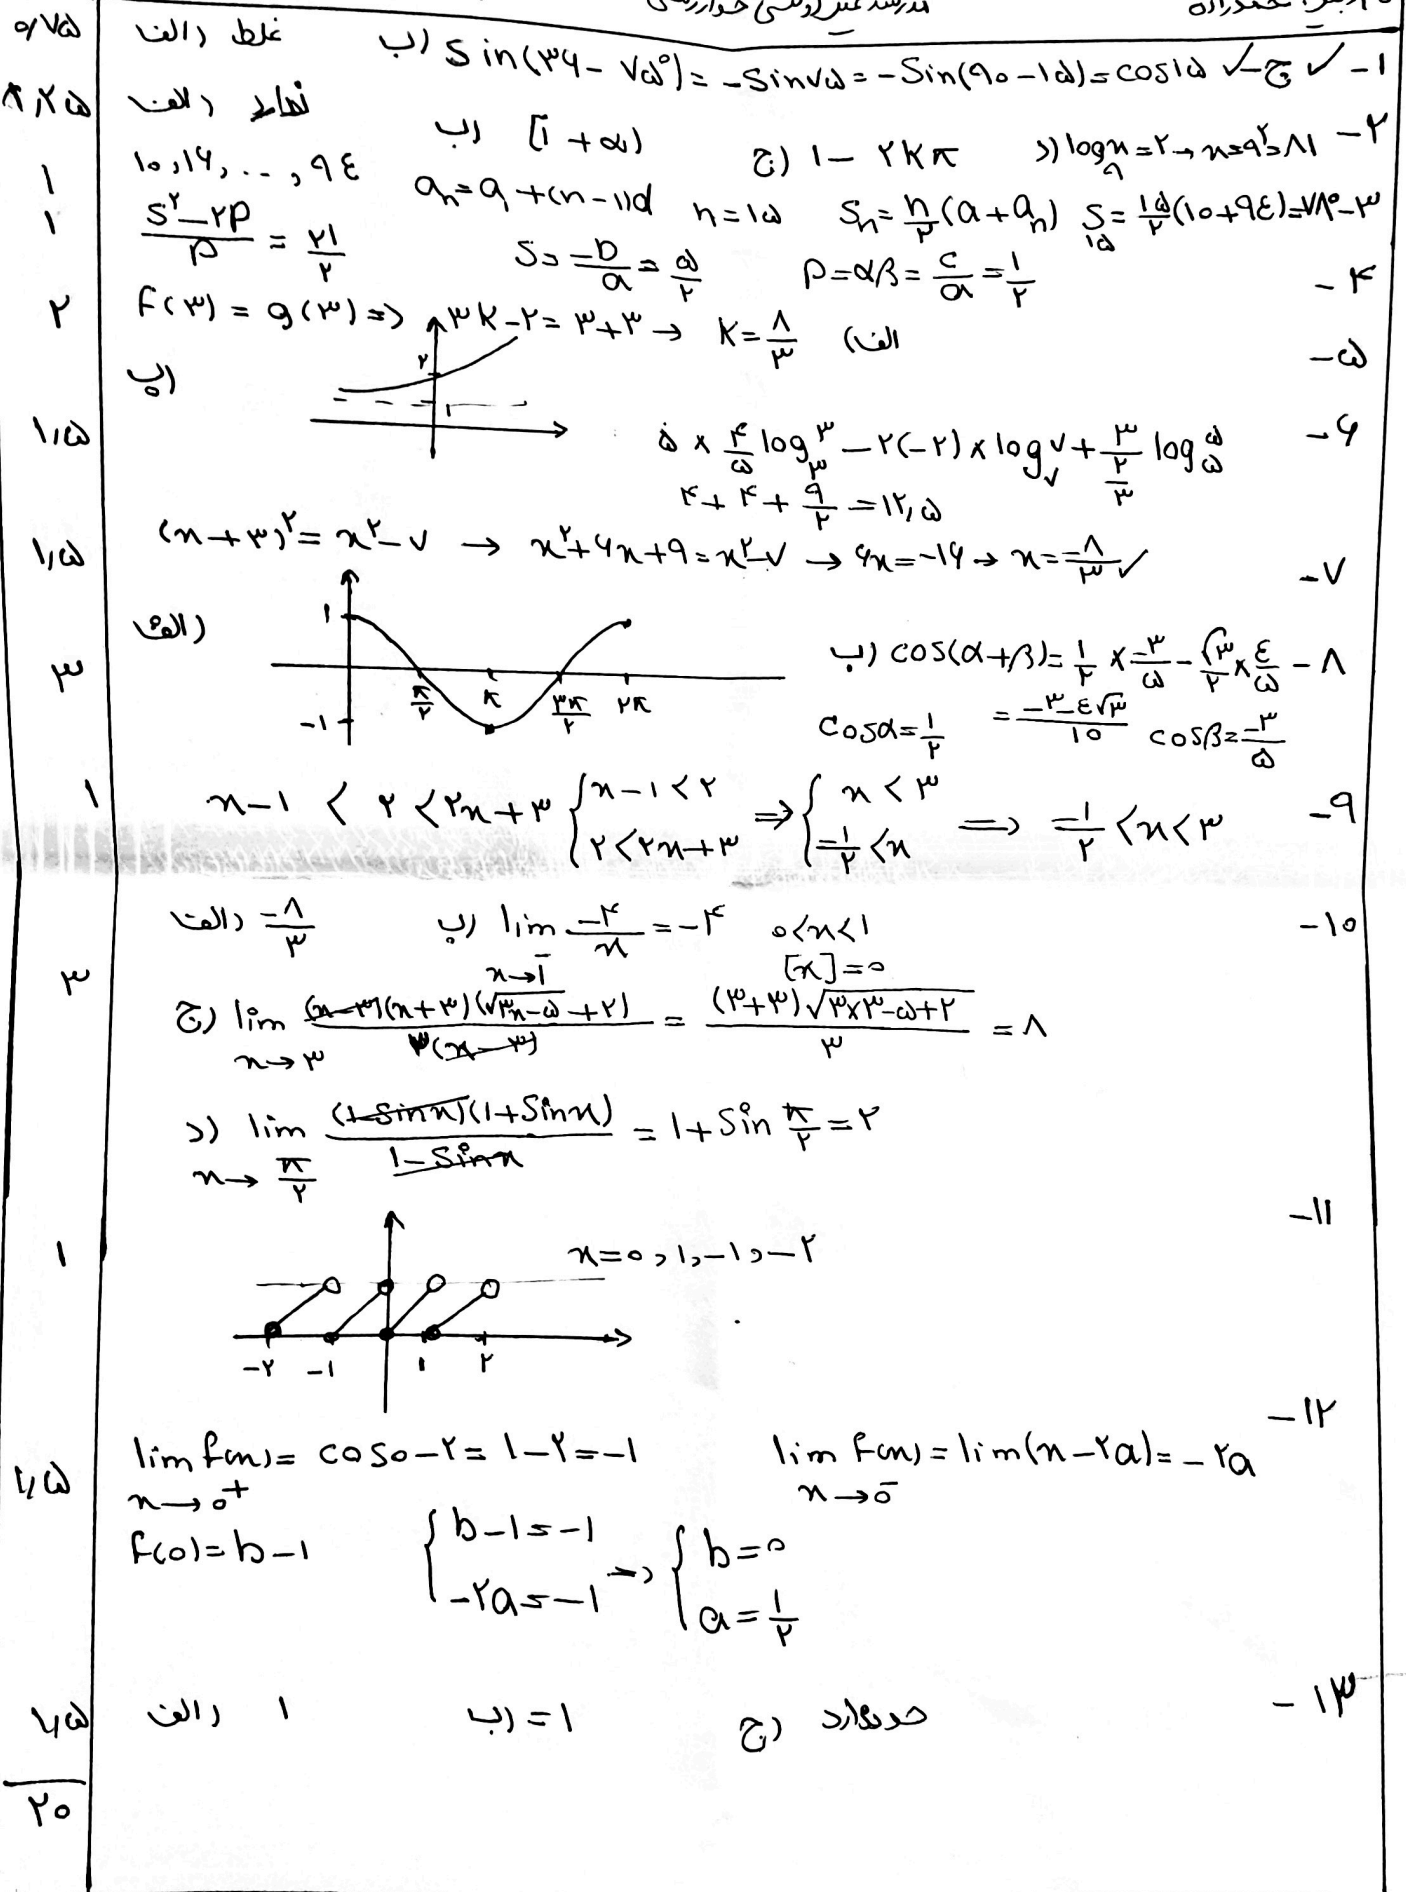 ۱- الف) غلط ب) Sin(۳۶- ۷۵°) = -Sin۷۵ = -Sin(۹۰-۱۵) = cos۱۵ ✓ ج ✓
۰/۷۵
۲- الف) ب) [۱ + ∞) ج) ۱- ۲kπ د) log x ۹ = ۲ → x=۹^۲=۸۱
۳- ۱۰,۱۶,...,۹۴ aₙ=a₁+(n-۱)d n=۱۵ Sₙ=n/۲(a+aₙ) S۱۵=۱۵/۲(۱۰+۹۴)=۷۸۰
۱
۴- (S^۲-۲P)/P = ۲۱/۲ S=-b/a=۵/۲ P=αβ=c/a=۱/۲
۱
۵- الف) f(۳) = g(۳) => ۳k-۲ = ۳+۳ → k=۸/۳
۲
ب)
۲
۱
۶- ۵ × ۴/۵ log۳ ۳ - ۲(-۲) × log۷ ۷ + ۳/(۲/۳) log۵ ۵
۱/۵
۴+۴+۹/۲ = ۱۲,۵
۷- (x+۳)^۲ = x^۲-۷ → x^۲+۶x+۹=x^۲-۷ → ۶x=-۱۶ → x=-۸/۳ ✓
۱/۵
۸- الف) ب) cos(α+β)= ۱/۲ × -۳/۵ - √۳/۲ × ۴/۵
۳
= (-۳-۴√۳)/۱۰
cosα=۱/۲ cosβ=-۳/۵
۱ -۱ π/۲ π ۳π/۲ ۲π
۹- x-۱ < ۲ < ۲x+۳ { x-۱<۲ , ۲<۲x+۳ => { x<۳ , -۱/۲<x => -۱/۲<x<۳
۱
۱۰- الف) -۸/۳ ب) lim x→۱⁻ -۴/x = -۴ ۰<x<۱
[x]=۰
۳
ج) lim x→۳ (x-۳)(x+۳)(√۳x-۵+۲)/۳(x-۳) = (۳+۳)√۳×۳-۵+۲/۳ = ۸
د) lim x→π/۲ (۱-Sinx)(۱+Sinx)/۱-Sinx = ۱+Sin π/۲ = ۲
۱۱-
x=۰,۱,-۱,-۲
۱
-۲ -۱ ۱ ۲
۱۲-
lim x→۰⁺ f(x) = cos۰-۲=۱-۲=-۱ lim x→۰⁻ f(x) = lim(x-۲a)=-۲a
۱/۵
f(۰)=b-۱ { b-۱=-۱ , -۲a=-۱ => { b=۰ , a=۱/۲
۱۳- الف) ۱ ب) =۱ ج) حد ندارد
۱/۵
۲۰